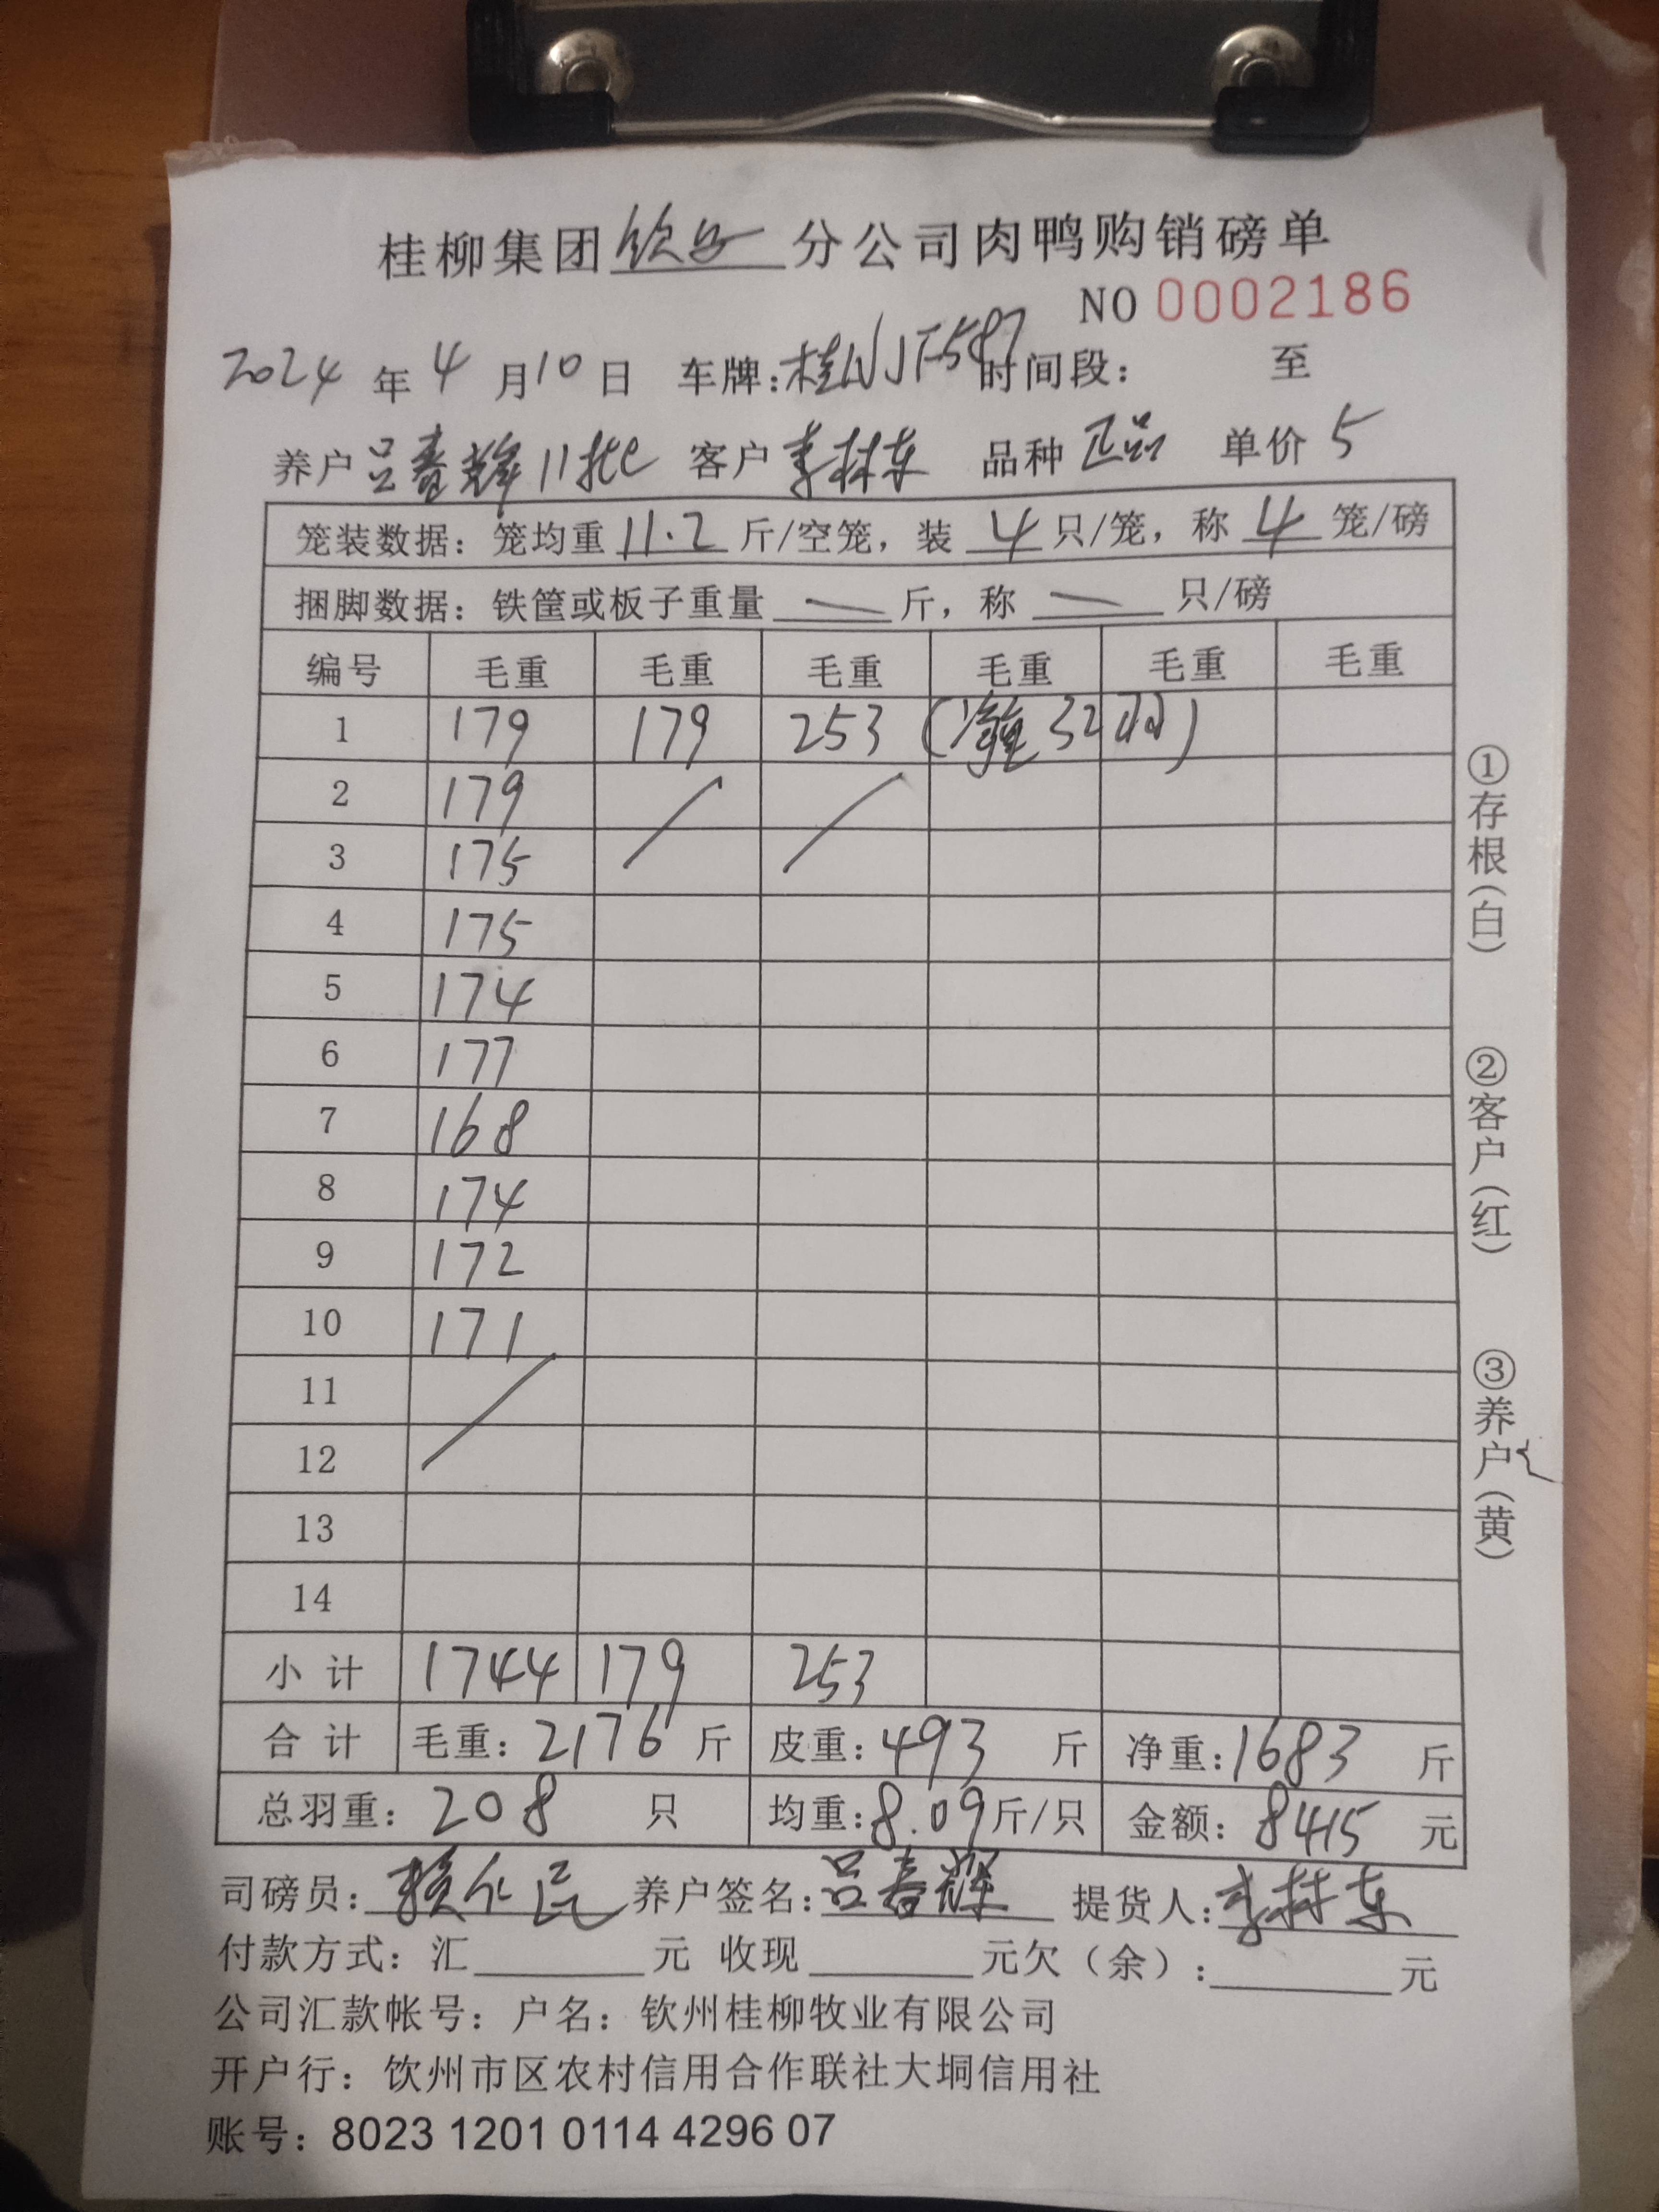 桂柳集团钦州分公司肉鸭购销磅单
NO 0002186
2024年4月10日 车牌:桂NJT587 时间段: 至
养户 吕春辉11批 客户 李林东 品种 正品 单价 5
笼装数据：笼均重 11.2 斤/空笼，装 4 只/笼，称 4 笼/磅
捆脚数据：铁筐或板子重量 — 斤，称 — 只/磅
编号 毛重 毛重 毛重 毛重 毛重 毛重
1 179 179 253 ( 32羽)
2 179
3 175
4 175
5 174
6 177
7 168
8 174
9 172
10 171
11
12
13
14
小计 1744 179 253
合计 毛重：2176 斤 皮重：493 斤 净重：1683 斤
总羽重：208 只 均重：8.09斤/只 金额：8415 元
司磅员： 养户签名：吕春辉 提货人：李林东
付款方式：汇 元 收现 元欠（余）： 元
公司汇款帐号：户名：钦州桂柳牧业有限公司
开户行：钦州市区农村信用合作联社大垌信用社
账号：8023 1201 0114 4296 07
①存根(白)
②客户(红)
③养户(黄)